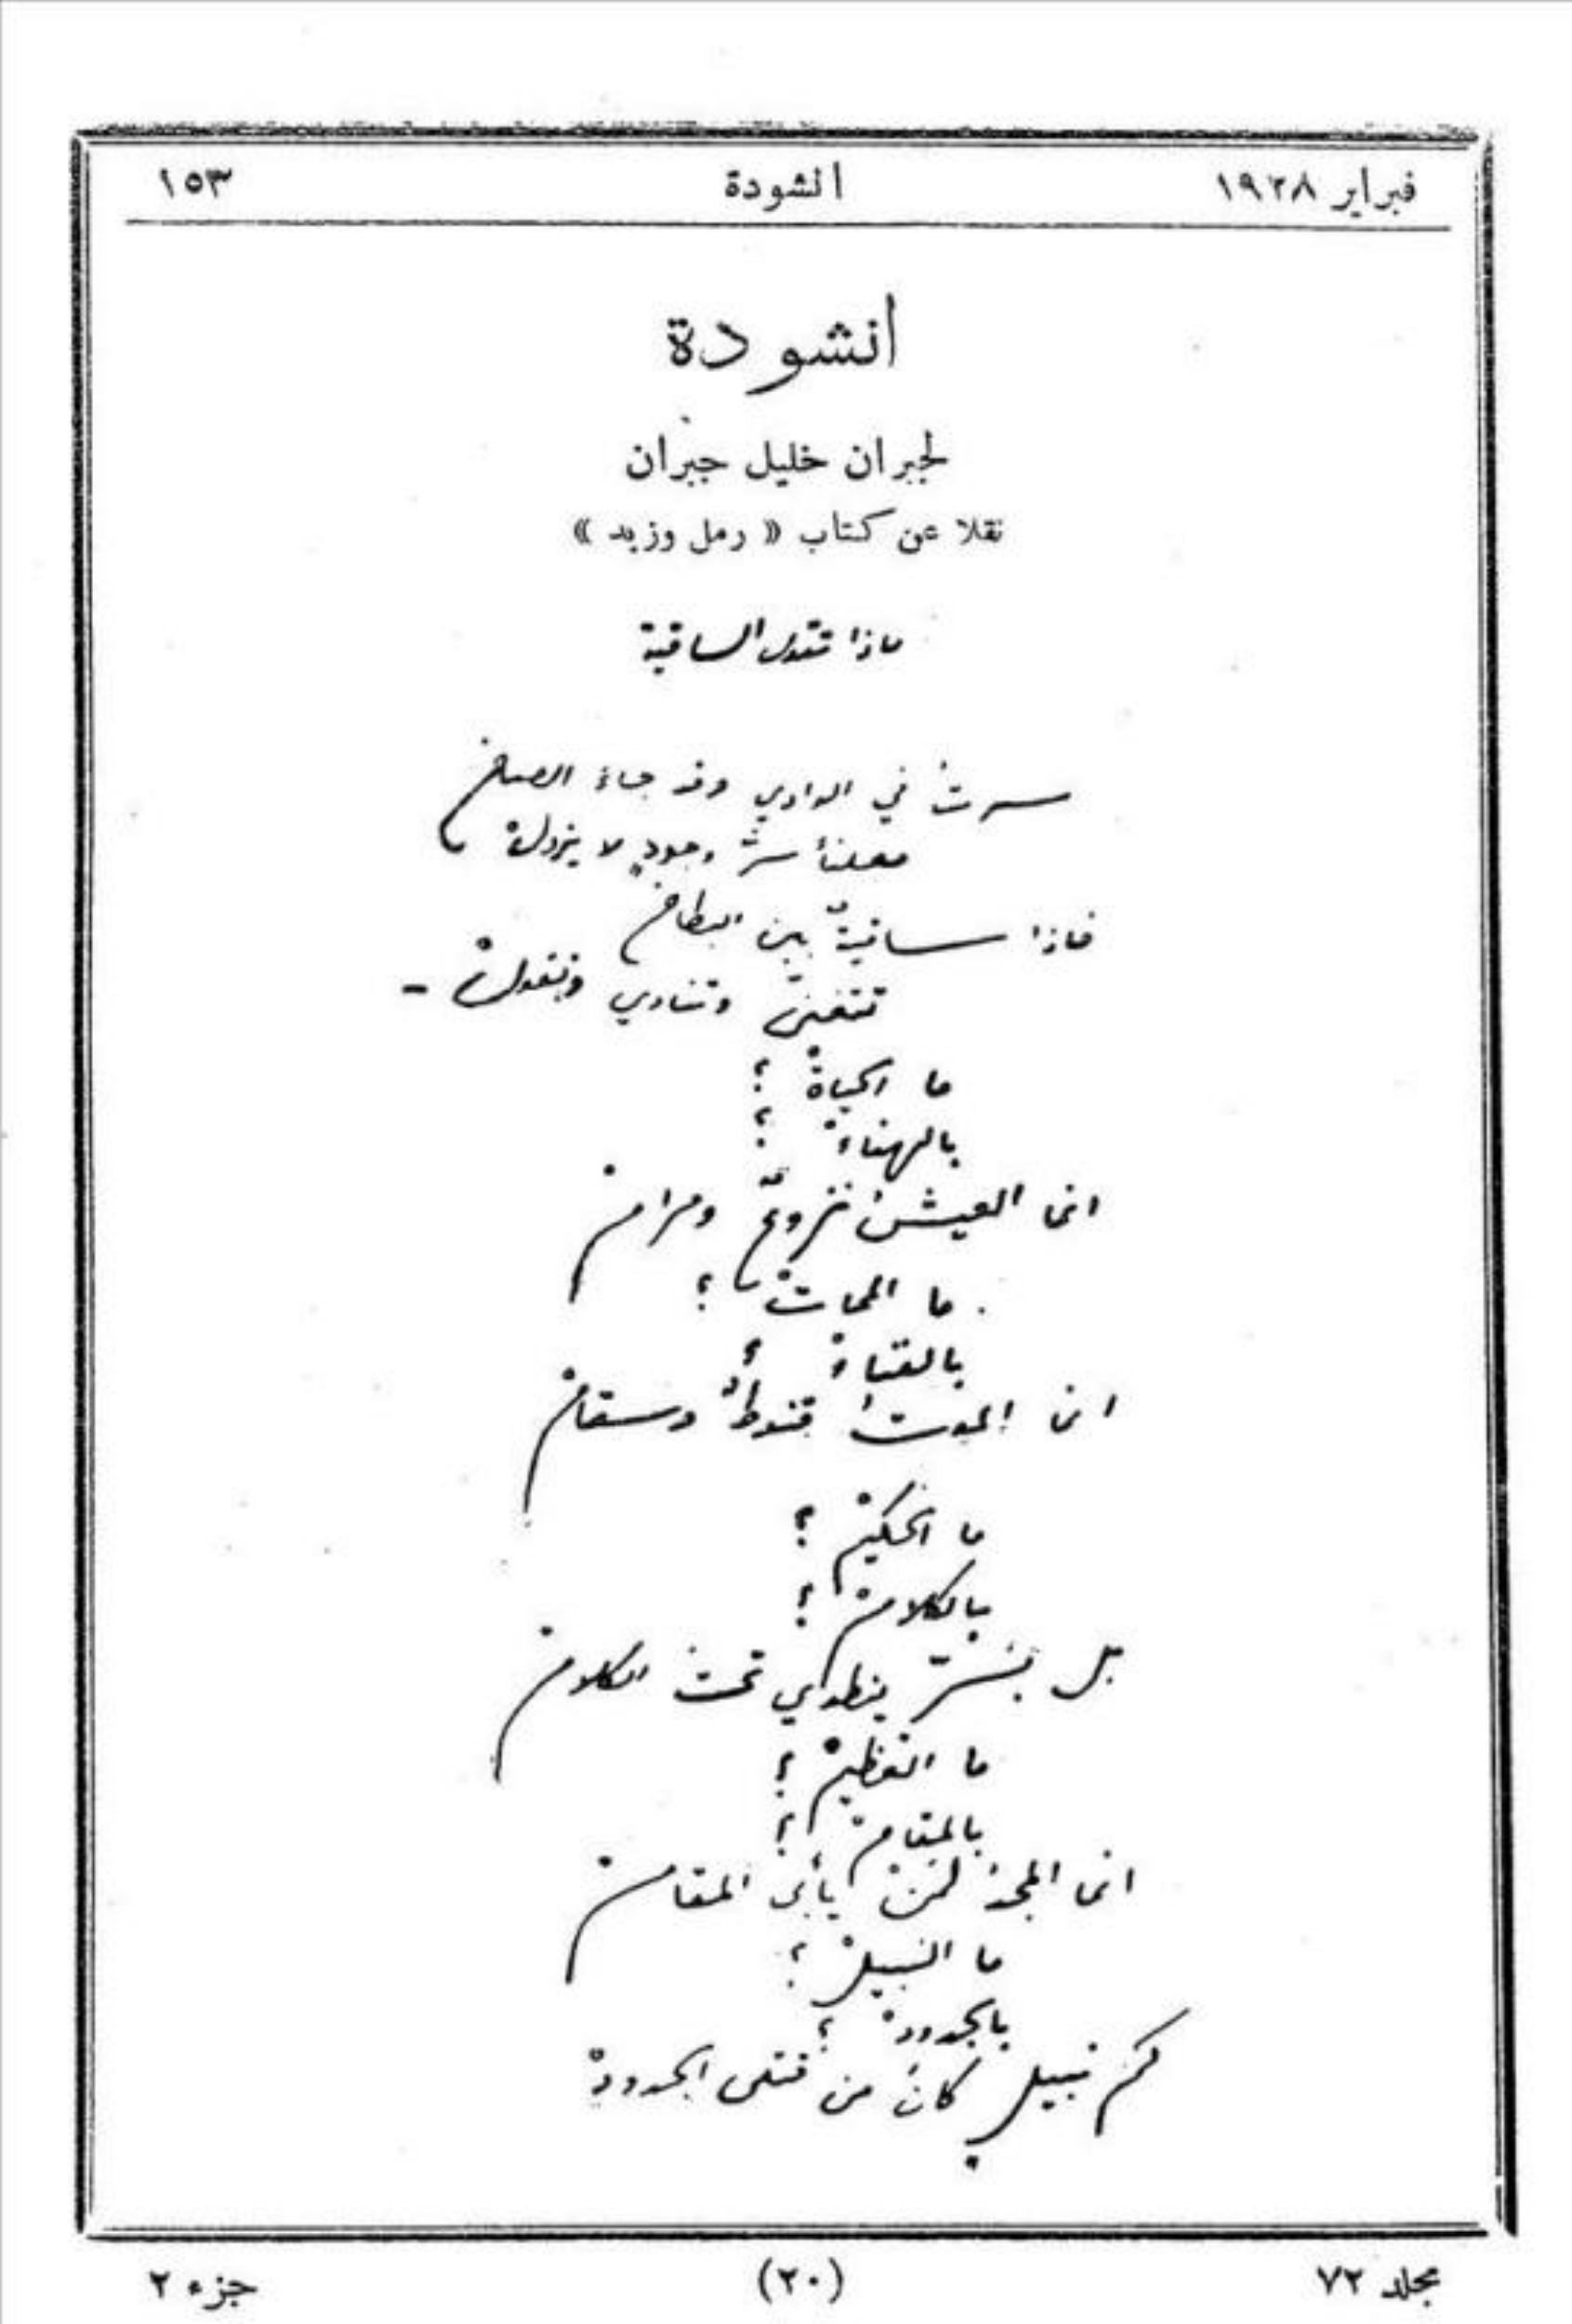 فبراير ١٩٢٨ انشودة ١٥٣
انشودة
لجبران خليل جبران
نقلا عن كتاب « رمل وزبد »
ماذا تقول الساقية
سرتُ في الوادي وقد جاءَ الصباحْ
معلناً سرَّ وجودٍ لا يزولْ
فاذا ساقيةٌ بين البطاحْ
تتغنّى وتنادي وتقولْ -
ما الحياةْ ؟
بالهناءْ ؟
انما العيشُ نزوعٌ ومرامْ
ما المماتْ ؟
بالفناءْ ؟
انما الموتُ قنوطٌ وسقامْ
ما الحكيمْ ؟
بالكلامْ ؟
بل بسرٍّ ينطوي تحتَ الكلامْ
ما العظيمْ ؟
بالمقامْ ؟
انما المجدُ لمَنْ يأبى المقامْ
ما النبيلْ ؟
بالجدودْ ؟
كم نبيلٍ كانَ من قتلى الجدودْ
مجلد ٧٢ (٢٠) جزء ٢